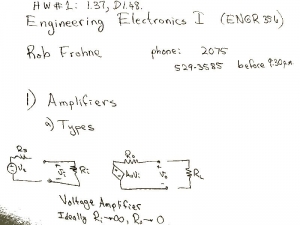 HW#1: 1.37, D1.48.
Engineering Electronics I (ENGR 356)
Rob Frohne phone: 2075
529-3585 before 9:30p.m.
1) Amplifiers
a) Types
Ro Vo Vi Ri Ro AvVi Vo RL
Voltage Amplifier
Ideally Ri→∞, Ro→0